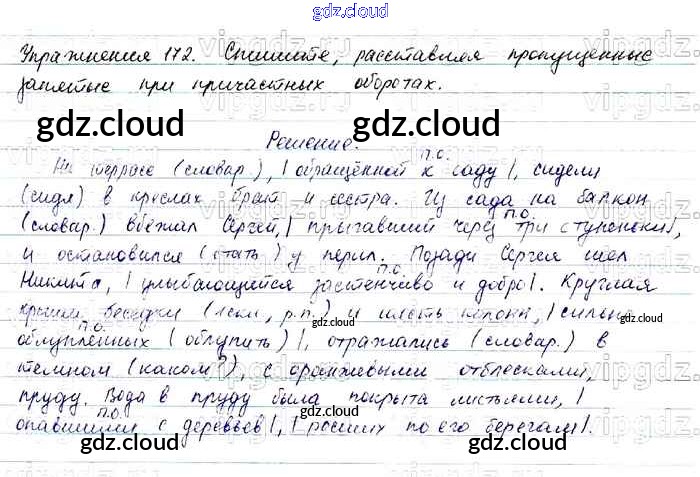 gdz.cloud
Упражнения 172. Спишите, расставляя пропущенные
запятые при причастных оборотах.
gdz.cloud gdz.cloud
Решение.
п.о.
На террасе (словар.), | обращённой к саду |, сидели
(сидя) в креслах брат и сестра. Из сада на балкон
п.о.
(словар.) вбежал Сергей, | прыгавший через три ступеньки |,
и остановился (стать) у перил. Позади Сергея шел
п.о.
Никита, | улыбающийся застенчиво и добро |. Круглая
крыша беседки (I скл., р.п.) и шесть колонн, | сильно
gdz.cloud gdz.cloud
п.о.
облупленных (облупить) |, отражались (словар.) в
темном (каком?), с оранжевыми отблесками,
пруду. Вода в пруду была покрыта листьями, |
п.о.
опавшими с деревьев |, | росших по его берегам |.
gdz.cloud gdz.cloud